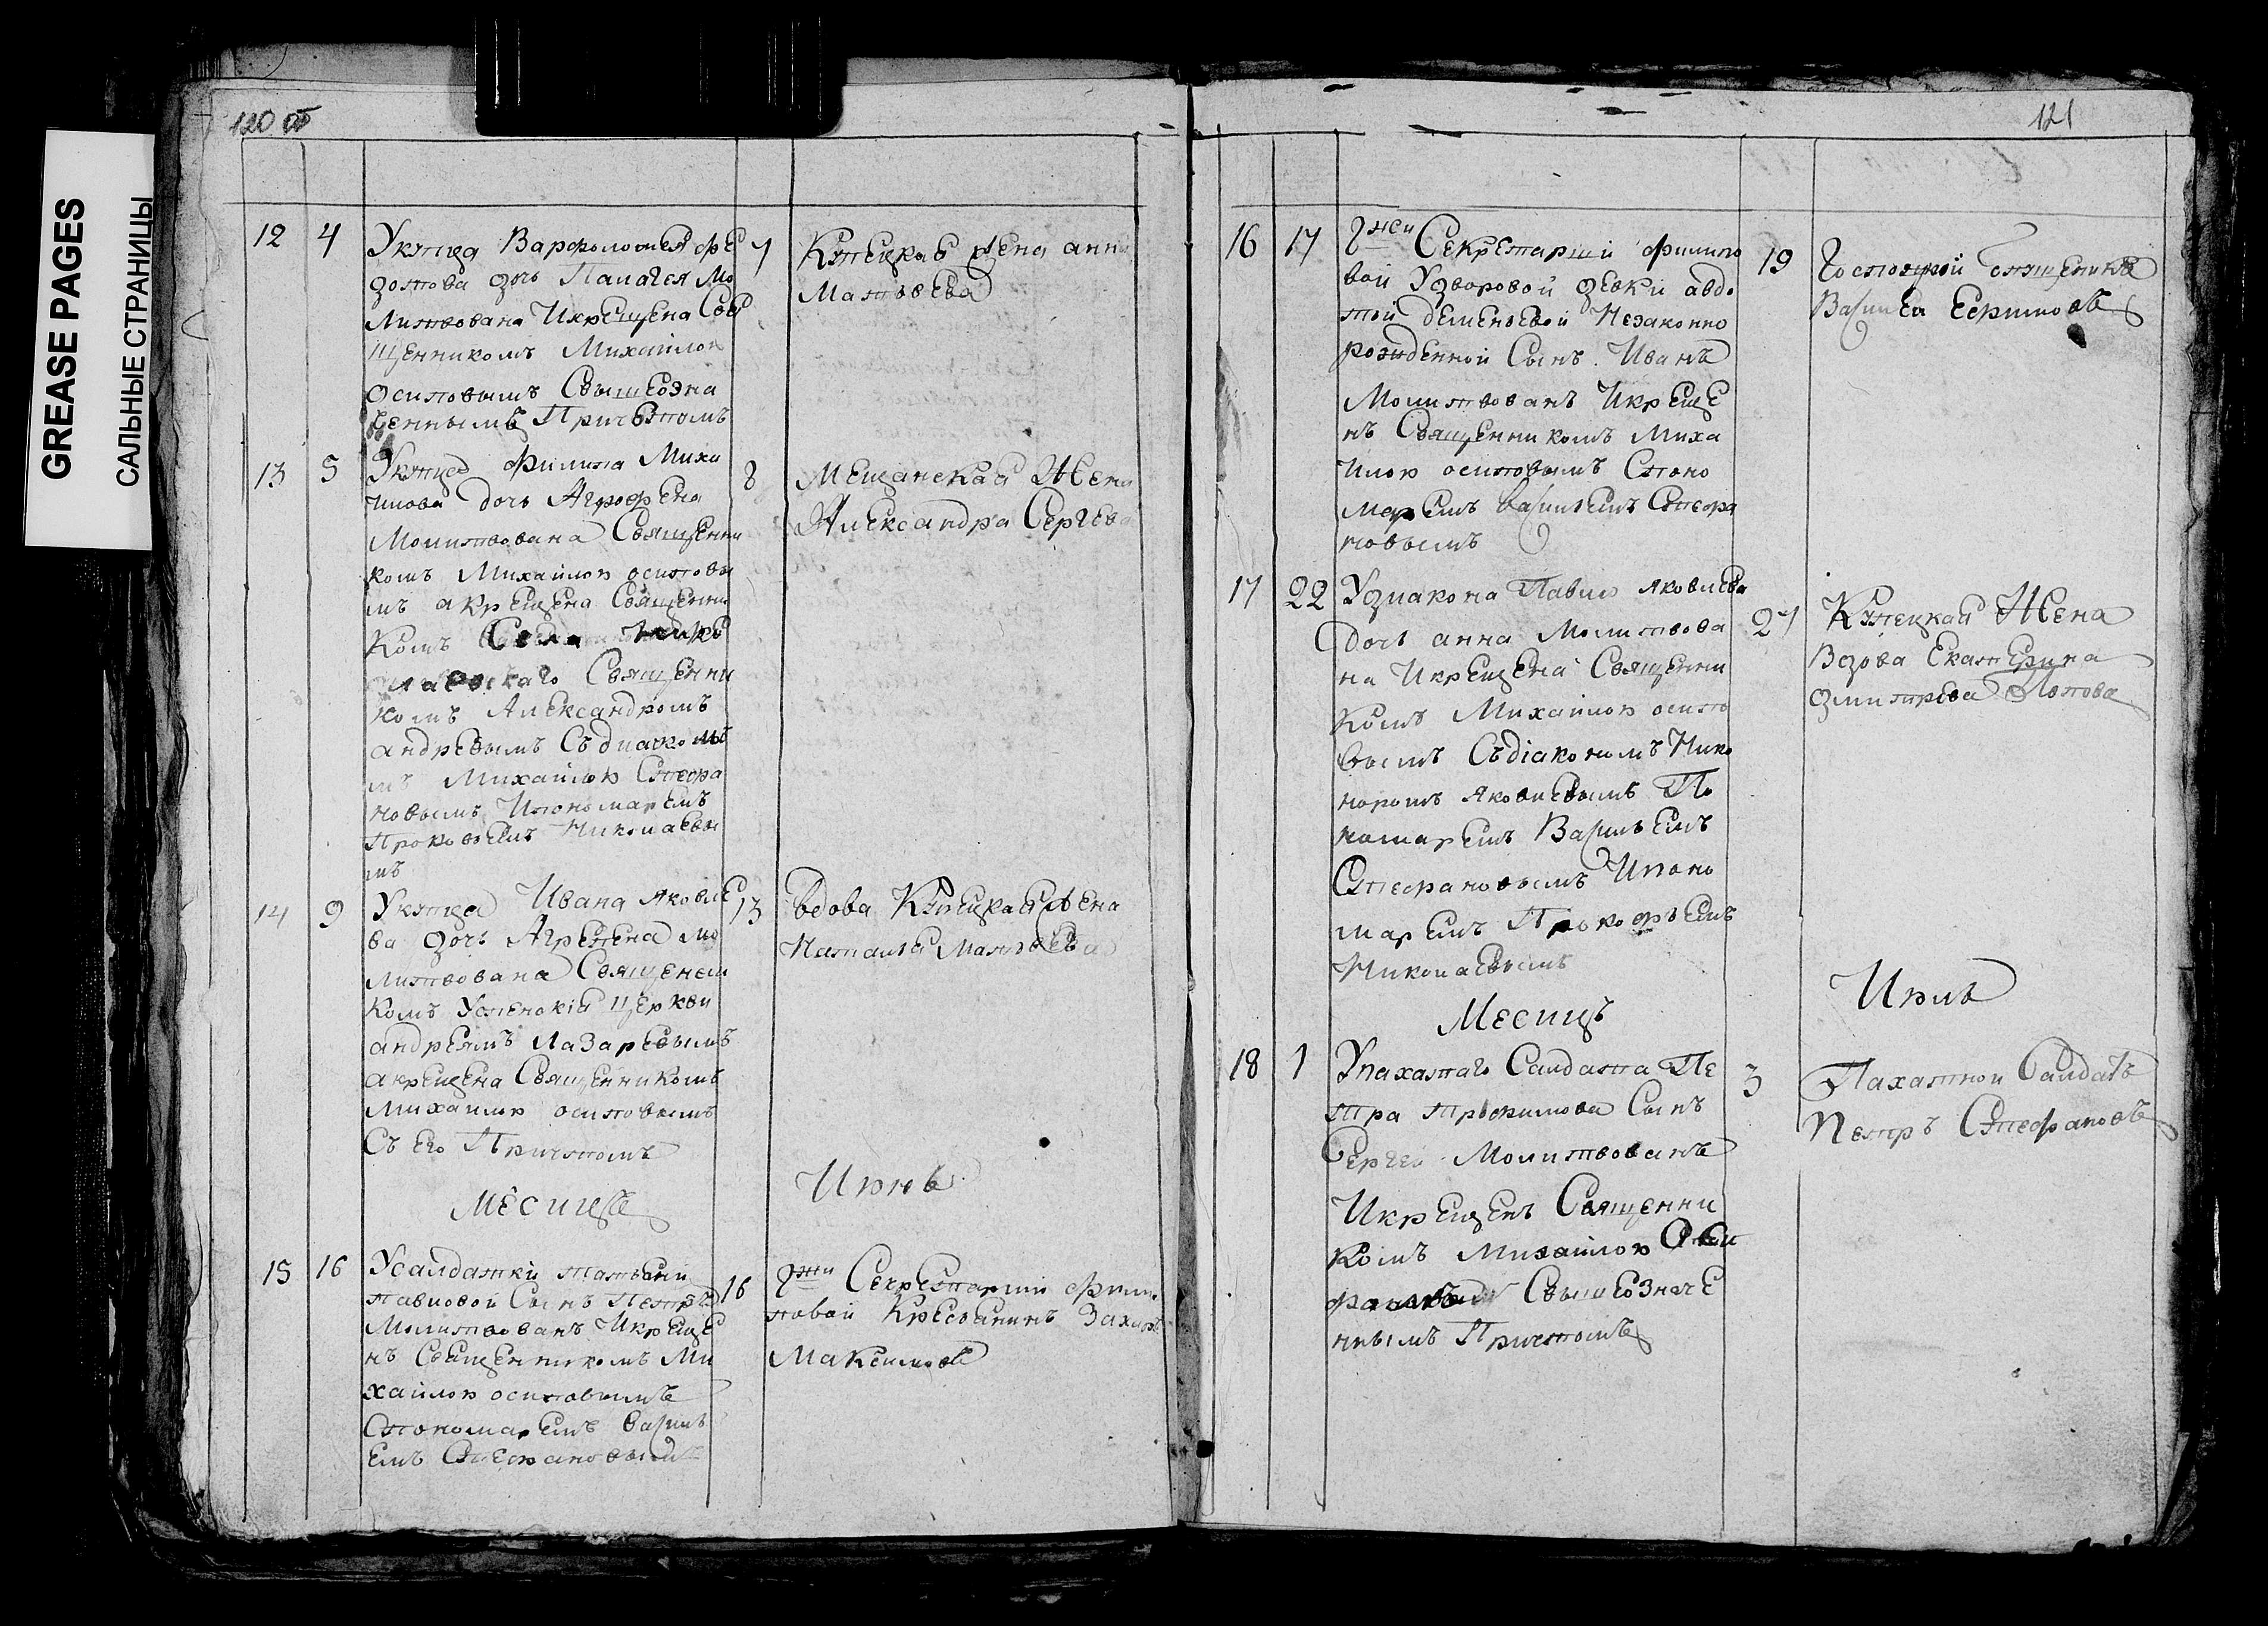 GREASE PAGES
САЛЬНЫЕ СТРАНИЦЫ
120 об
12 4
Укупца Варфоломея Фе
дотова дочь Палагея Мо
литвована Икрещена Свя
щенникомъ Михаилом
осиповымъ Свышеозна
ченнымъ Причетомъ
7
Купецкая Жена анна
Матвеева
13 5
Укупца Филипа Миха
илова дочь Агрофена
Молитвована Священни
комъ Михаилом осиповы
мъ акрещена Священни
комъ Села
Священни
комъ Александромъ
андревымъ Съдиакономъ
мъ Михаилом Стефа
новымъ Ипономаремъ
Прокофьемъ Николаевы
мъ
8
Мещанская Жена
Александра Сергева
14 9
Укупца Ивана Яковле
ва дочь Агрепена мо
литвована Священни
комъ Успенския церкви
андреямъ Лазаревымъ
акрещена Священникомъ
Михаилом осиповымъ
Съ его Причтомъ
13
вдова Купецкая Жена
Наталья Матвеева
Месицъ
Июнь
15 16
Усалдатки татьяни
павловой Сынъ Петръ
Молитвованъ Икреще
нъ Священникомъ Ми
хаилом осиповымъ
Спономаремъ Василь
емъ Стефановымъ
16
Гжи Секретарши Фили
повой Кресьянинъ Захаръ
Максимовъ
121
16 17
Гжи Секретарши Филипо
вой Удворовой девки авдо
тьи деменьевой Незаконно
рожденной Сынъ Иванъ
Молитвованъ Икреще
нъ Священникомъ Миха
илом осиповымъ Споно
маремъ Васильемъ Стефа
новымъ
19
Василеи Ефимовъ
17 22
Удиакона Павла Яковлева
Дочь анна Молитвова
на Икрещена Священни
комъ Михаилом осипо
вымъ Съдіакономъ Нико
норомъ Яковлевымъ По
номаремъ Васильемъ
Стефановымъ Ипоно
маремъ Прокофьемъ
Николаевымъ
27
Купецкая Жена
Вдова Екатерина
дмитрева Попова
Месицъ
Июль
18 1
Упахатнаго Салдата Пе
тра трофимова Сынъ
Сергеи Молитвованъ
Икрещенъ Священни
комъ Михаилом
Свышеозначе
ннымъ Причтомъ
3
Пахатнои Салдатъ
Петръ Стефановъ